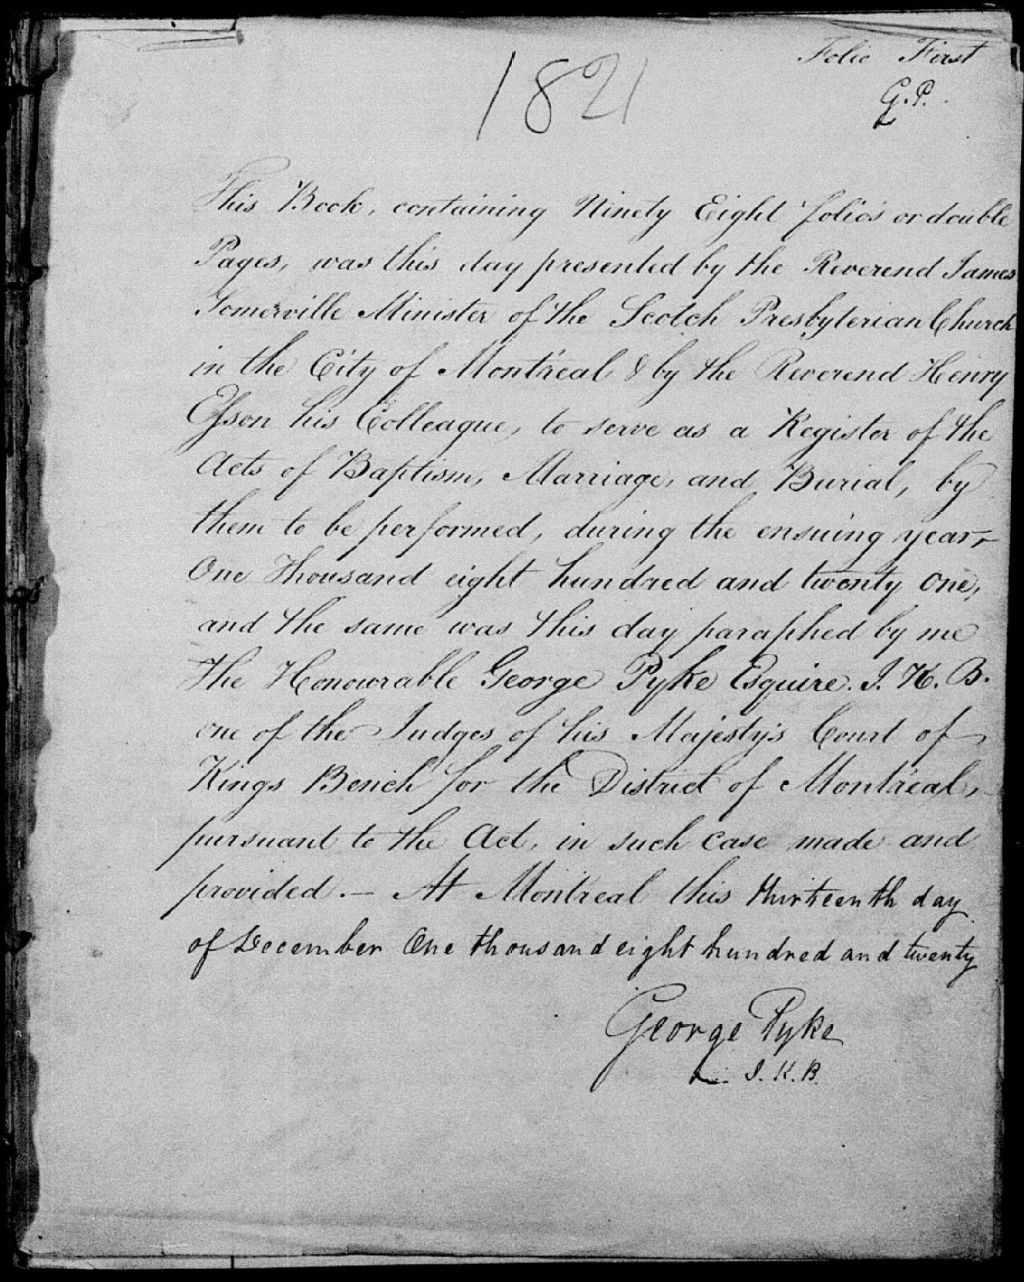 Folio First
G.P.
1821
This Book, containing Ninety Eight folio's or double
Pages, was this day presented by the Reverend James
Somerville Minister of the Scotch Presbyterian Church
in the City of Montreal & by the Reverend Henry
Esson his Colleague, to serve as a Register of the
Acts of Baptism, Marriage, and Burial, by
them to be performed, during the ensuing year,
One Thousand eight hundred and twenty One,
and the same was this day paraphed by me
The Honourable George Pyke Esquire. J. K. B.
one of the Judges of his Majesty's Court of
Kings Bench for the District of Montreal,
pursuant to the Act, in such case made and
provided. — At Montreal this thirteenth day
of December One thousand eight hundred and twenty
George Pyke
J. K. B.